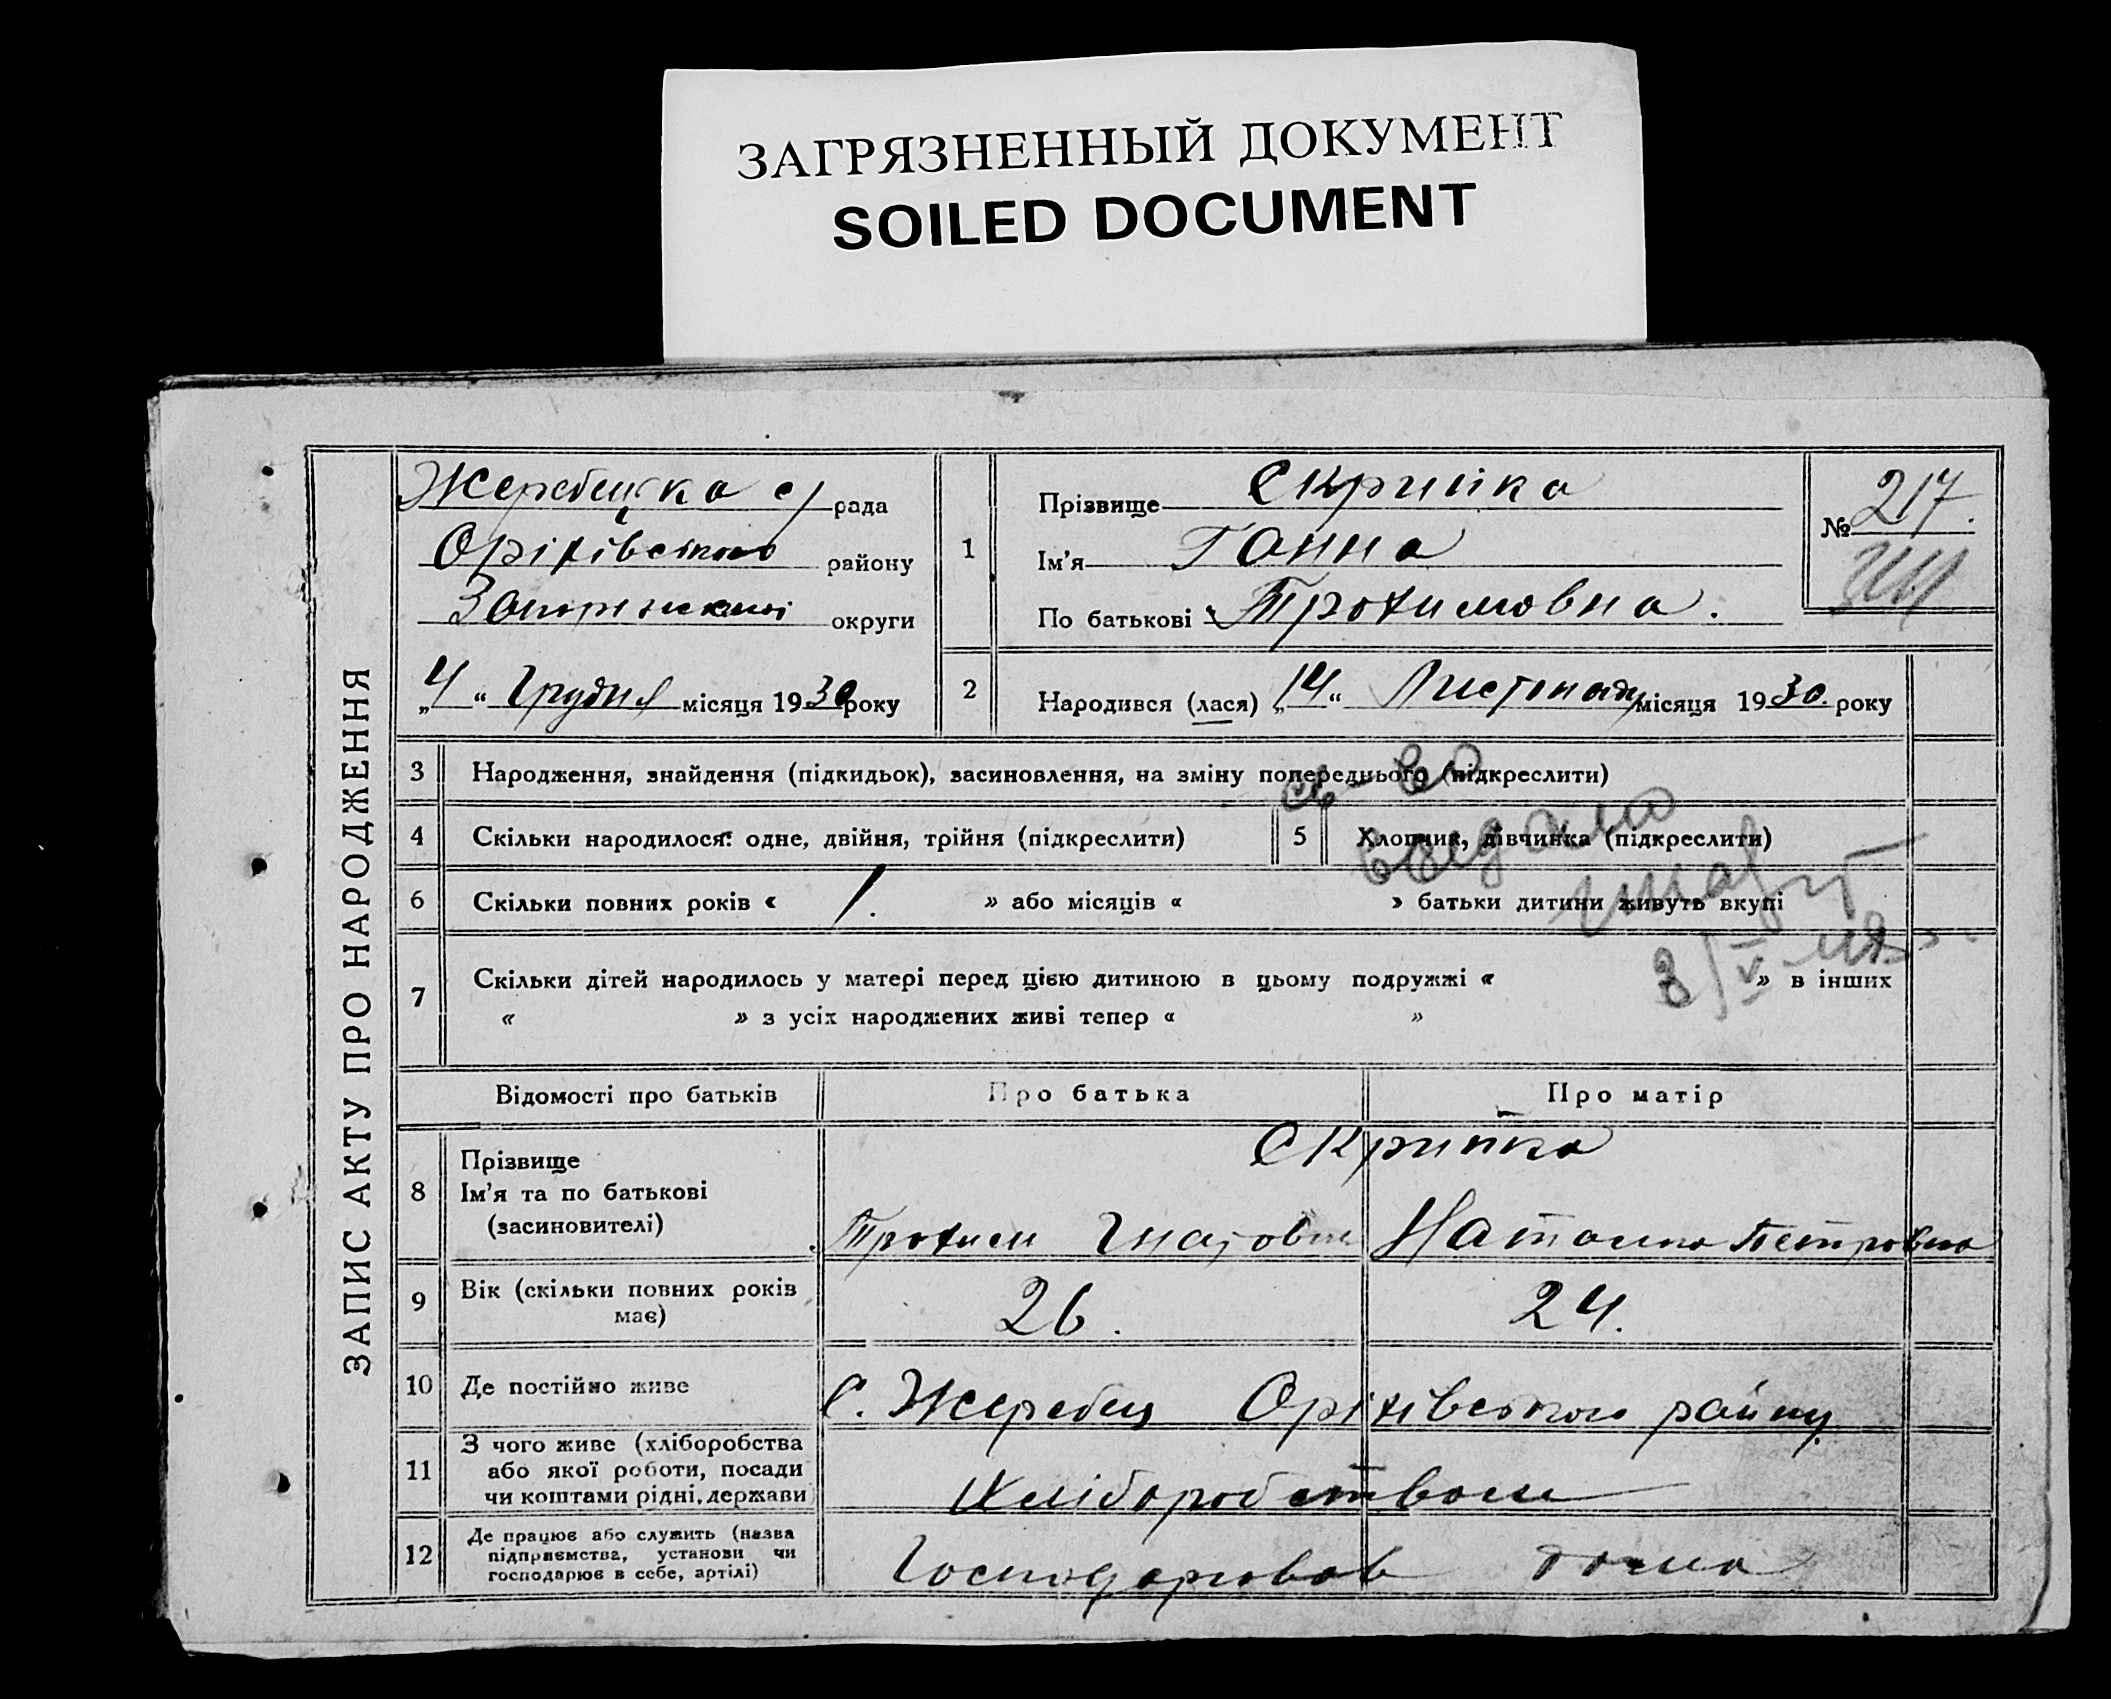 ЗАГРЯЗНЕННЫЙ ДОКУМЕНТ
SOILED DOCUMENT
ЗАПИС АКТУ ПРО НАРОДЖЕННЯ
Жеребецька с/рада
Оріхівського району
Запорізької округи
„4“ Грудня місяця 1930 року
1 Прізвище Скрипка
Ім'я Ганна
По батькові Трохимовна.
№ 217.
2 Народився (лася) „14“ Листопаду місяця 1930. року
3 Народження, знайдення (підкидьок), засиновлення, на зміну попереднього (підкреслити)
4 Скільки народилося: одне, двійня, трійня (підкреслити)
5 Хлопчик, дівчинка (підкреслити)
6 Скільки повних років « 1. » або місяців « » батьки дитини живуть вкупі
7 Скільки дітей народилось у матері перед цією дитиною в цьому подружжі « » в інших
« » з усіх народжених живі тепер « »
св-во
видано
Відомості про батьків Про батька Про матір
8 Прізвище
Ім'я та по батькові
(засиновителі)
Скрипка
Трохим Гнатович Наталка Петровна
9 Вік (скільки повних років
має)
26. 24.
10 Де постійно живе
С. Жеребец Оріхівського району
11 З чого живе (хліборобства
або якої роботи, посади
чи коштами рідні, держави)
Хліборобством
12 Де працює або служить (назва
підприємства, установи чи
господарює в себе, артілі)